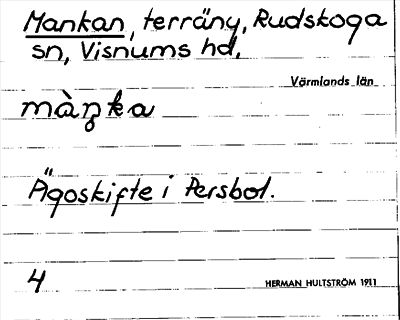 Mankan, terräng, Rudskoga
sn, Visnums hd,
Värmlands län
màŋka
Ägoskifte i Persbol.
4
HERMAN HULTSTRÖM 1911